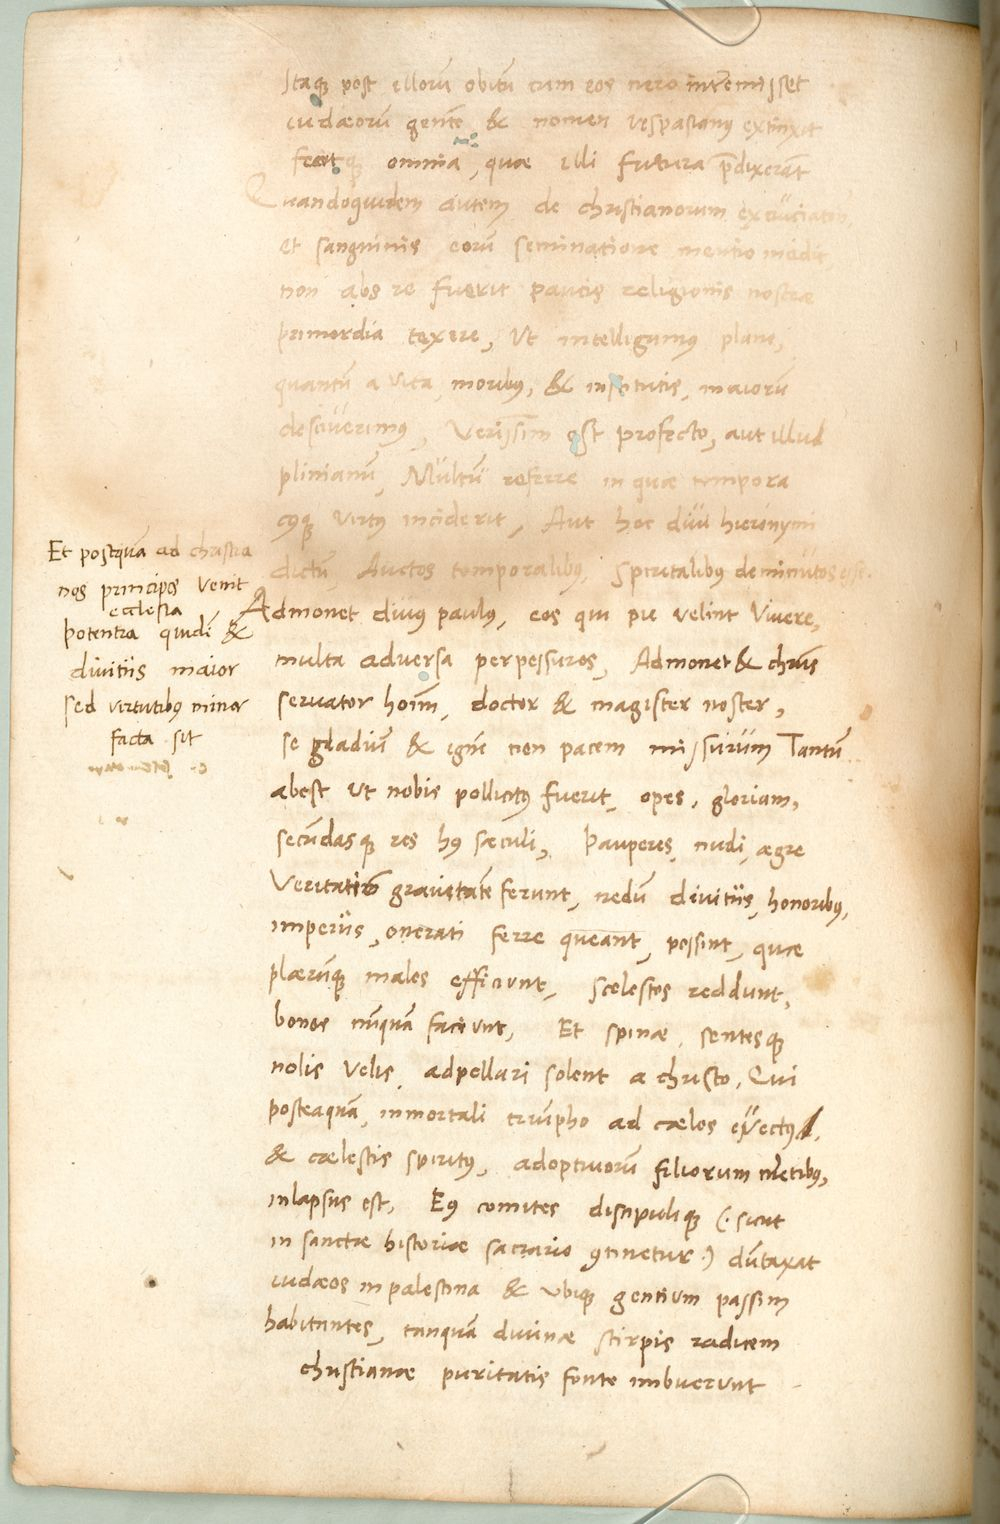 Itaq̃ post illorũ obitũ cum eos nero interemisset
iudæorũ gentẽ & nomen vespasianus extinxit
fecitq̃ omnia, quæ illi futura p̃dixerãt
Quandoquidem autem de christianorum
et sanguinis eorũ seminatione mentio incidit
non abs re fuerit paucis religionis nostræ
primordia texere, Ut intelligamus plane,
quantũ a vita, moribus, & institutis, maiorũ
desciverimus, Verissim est profecto, aut illud
plinianũ, Multũ referre in quæ tempora
cuiusq̃ virtus inciderit, Aut hoc divi hieronymi
dictũ, Auctos temporalibus, Spiritalibus deminutos esse.
Et postquã ad christia
nos principes venit
ecclesia
potentia quidẽ &
divitiis maior
sed virtutibus minor
facta sit
Admonet divus paulus, eos qui pie velint vivere,
multa adversa perpessuros, Admonet & chrũs
servator hoĩm, doctor & magister noster,
se gladiũ & ignẽ non pacem missurum Tantũ
abest ut nobis pollicitus fuerit, opes, gloriam,
secũdasq̃ res hus sæculi, Pauperes, nudi, ægre
veritatis gravitatẽ ferunt, nedũ divitiis, honoribus,
imperiis, onerati ferre queant, possint, quæ
plærũq̃ malos efficiunt, scelestos reddunt,
bonos nũquã faciunt, Et spinæ, sentesq̃
nolis velis, adpellari solent a christo, Qui
posteaquã, inmortali triũpho ad cælos evectus,
& cælestis spiritus, adoptivorũ filiorum mẽtibus,
inlapsus est, Eius comites discipuliq̃ (. sicut
in sanctæ historiæ sacrario 9tinetur .) dũtaxat
iudæos in palestina & ubiq̃ gentium passim
habitantes, tanquã divinæ stirpis radicem
christianæ puritatis fonte imbuerunt